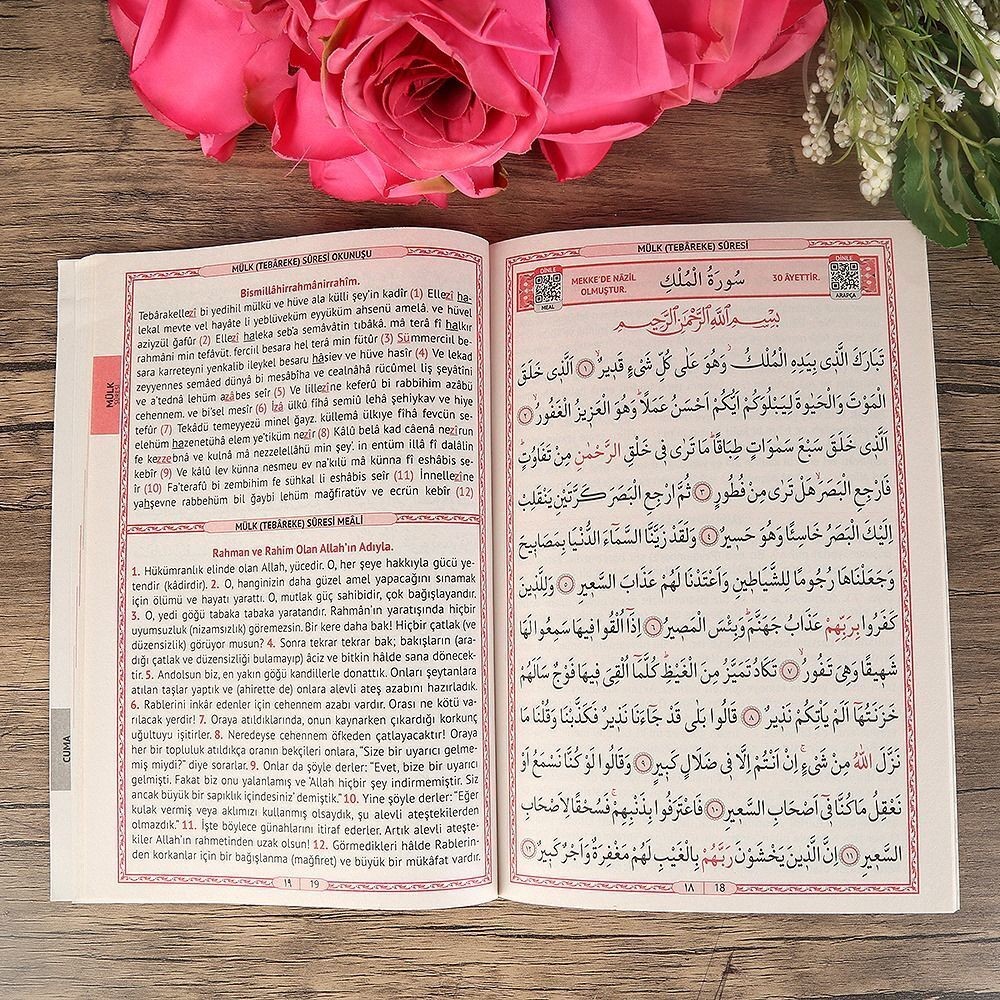 MÜLK (TEBÂREKE) SÛRESİ
DİNLE
MEAL
MEKKE'DE NÂZİL
OLMUŞTUR.
سُورَةُ الْمُلْكِ
30 ÂYETTİR.
DİNLE
ARAPÇA
بِسْمِ اللّٰهِ الرَّحْمٰنِ الرَّحِيمِ
تَبَارَكَ الَّذٖى بِيَدِهِ الْمُلْكُ وَهُوَ عَلٰى كُلِّ شَىْءٍ قَدٖيرٌ ﴿١﴾ اَلَّذٖى خَلَقَ
الْمَوْتَ وَالْحَيٰوةَ لِيَبْلُوَكُمْ اَيُّكُمْ اَحْسَنُ عَمَلًا وَهُوَ الْعَزٖيزُ الْغَفُورُ ﴿٢﴾
اَلَّذٖى خَلَقَ سَبْعَ سَمٰوَاتٍ طِبَاقًا مَا تَرٰى فٖى خَلْقِ الرَّحْمٰنِ مِنْ تَفَاوُتٍ
فَارْجِعِ الْبَصَرَ هَلْ تَرٰى مِنْ فُطُورٍ ﴿٣﴾ ثُمَّ ارْجِعِ الْبَصَرَ كَرَّتَيْنِ يَنْقَلِبْ
اِلَيْكَ الْبَصَرُ خَاسِئًا وَهُوَ حَسٖيرٌ ﴿٤﴾ وَلَقَدْ زَيَّنَّا السَّمَاءَ الدُّنْيَا بِمَصَابٖيحَ
وَجَعَلْنَاهَا رُجُومًا لِلشَّيَاطٖينِ وَاَعْتَدْنَا لَهُمْ عَذَابَ السَّعٖيرِ ﴿٥﴾ وَلِلَّذٖينَ
كَفَرُوا بِرَبِّهِمْ عَذَابُ جَهَنَّمَ وَبِئْسَ الْمَصٖيرُ ﴿٦﴾ اِذَا اُلْقُوا فٖيهَا سَمِعُوا لَهَا
شَهٖيقًا وَهِىَ تَفُورُ ﴿٧﴾ تَكَادُ تَمَيَّزُ مِنَ الْغَيْظِ كُلَّمَا اُلْقِىَ فٖيهَا فَوْجٌ سَاَلَهُمْ
خَزَنَتُهَا اَلَمْ يَاْتِكُمْ نَذٖيرٌ ﴿٨﴾ قَالُوا بَلٰى قَدْ جَاءَنَا نَذٖيرٌ فَكَذَّبْنَا وَقُلْنَا مَا
نَزَّلَ اللّٰهُ مِنْ شَىْءٍ اِنْ اَنْتُمْ اِلَّا فٖى ضَلَالٍ كَبٖيرٍ ﴿٩﴾ وَقَالُوا لَوْ كُنَّا نَسْمَعُ اَوْ
نَعْقِلُ مَا كُنَّا فٖى اَصْحَابِ السَّعٖيرِ ﴿١٠﴾ فَاعْتَرَفُوا بِذَنْبِهِمْ فَسُحْقًا لِاَصْحَابِ
السَّعٖيرِ ﴿١١﴾ اِنَّ الَّذٖينَ يَخْشَوْنَ رَبَّهُمْ بِالْغَيْبِ لَهُمْ مَغْفِرَةٌ وَاَجْرٌ كَبٖيرٌ ﴿١٢﴾
١٨ 18
MÜLK (TEBÂREKE) SÛRESİ OKUNUŞU
Bismillâhirrahmânirrahîm.
Tebârakellezî bi yedihil mülkü ve hüve ala külli şey'in kadîr (1) Ellezî ha-
lekal mevte vel hayâte li yeblüveküm eyyüküm ahsenü amelâ. ve hüvel
azîyzül ğafûr (2) Ellezî haleka seb'a semâvâtin tıbâkâ. mâ terâ fî halkır
rahmâni min tefâvüt, ferciıl besara hel terâ min fütûr (3) Sümmerciıl be-
sara karreteyni yenkalib ileykel besaru hâsiev ve hüve hasîr (4) Ve lekad
zeyyennes semâed dünyâ bi mesâbîha ve cealnâhâ rücûmel liş şeyâtîni
ve a'tednâ lehüm azâbes seîr (5) Ve lillezîne keferû bi rabbihim azâbü
cehennem. ve bi'sel mesîr (6) İzâ ülkû fîhâ semiû lehâ şehîykav ve hiye
tefûr (7) Tekâdü temeyyezü minel ğayz. küllemâ ülkıye fîhâ fevcün se-
elehüm hazenetühâ elem ye'tiküm nezîr (8) Kâlû belâ kad câenâ nezîrun
fe kezzebnâ ve kulnâ mâ nezzelellâhü min şey'. in entüm illâ fî dalâlin
kebîr (9) Ve kâlû lev künna nesmeu ev na'kılü mâ künna fî eshâbis se-
îr (10) Fa'terafû bi zembihim fe sühkal li eshâbis seîr (11) İnnellezîne
yahşevne rabbehüm bil ğaybi lehüm mağfiratüv ve ecrün kebîr (12)
MÜLK (TEBÂREKE) SÛRESİ MEÂLİ
Rahman ve Rahim Olan Allah'ın Adıyla.
1. Hükümranlık elinde olan Allah, yücedir. O, her şeye hakkıyla gücü ye-
tendir (kâdirdir). 2. O, hanginizin daha güzel amel yapacağını sınamak
için ölümü ve hayatı yarattı. O, mutlak güç sahibidir, çok bağışlayandır.
3. O, yedi göğü tabaka tabaka yaratandır. Rahmân'ın yaratışında hiçbir
uyumsuzluk (nizamsızlık) göremezsin. Bir kere daha bak! Hiçbir çatlak (ve
düzensizlik) görüyor musun? 4. Sonra tekrar tekrar bak; bakışların (ara-
dığı çatlak ve düzensizliği bulamayıp) âciz ve bitkin hâlde sana dönecek-
tir. 5. Andolsun biz, en yakın göğü kandillerle donattık. Onları şeytanlara
atılan taşlar yaptık ve (ahirette de) onlara alevli ateş azabını hazırladık.
6. Rablerini inkâr edenler için cehennem azabı vardır. Orası ne kötü va-
rılacak yerdir! 7. Oraya atıldıklarında, onun kaynarken çıkardığı korkunç
uğultuyu işitirler. 8. Neredeyse cehennem öfkeden çatlayacaktır! Oraya
her bir topluluk atıldıkça oranın bekçileri onlara, "Size bir uyarıcı gelme-
miş miydi?" diye sorarlar. 9. Onlar da şöyle derler: "Evet, bize bir uyarıcı
gelmişti. Fakat biz onu yalanlamış ve 'Allah hiçbir şey indirmemiştir. Siz
ancak büyük bir sapıklık içindesiniz' demiştik." 10. Yine şöyle derler: "Eğer
kulak vermiş veya aklımızı kullanmış olsaydık, şu alevli ateştekilerden
olmazdık." 11. İşte böylece günahlarını itiraf ederler. Artık alevli ateşte-
kiler Allah'ın rahmetinden uzak olsun! 12. Görmedikleri hâlde Rablerin-
den korkanlar için bir bağışlanma (mağfiret) ve büyük bir mükâfat vardır.
١٩ 19
MÜLK
SÛRESİ
CUMA